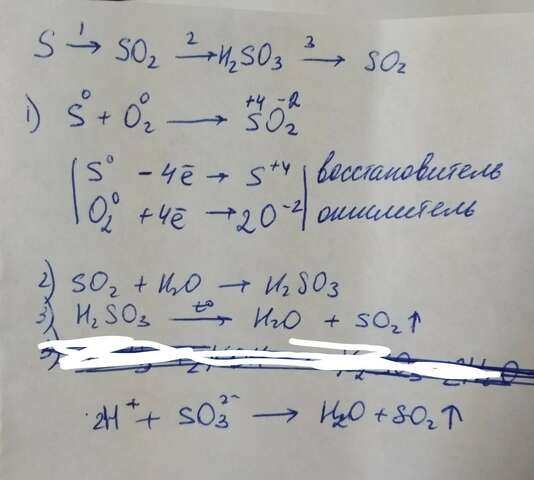 S →¹ SO₂ →² H₂SO₃ →³ SO₂
1) S⁰ + O₂⁰ → S⁺⁴O₂⁻²
S⁰ - 4ē → S⁺⁴ | восстановитель
O₂⁰ + 4ē → 2O⁻² | окислитель
2) SO₂ + H₂O → H₂SO₃
3) H₂SO₃ →t° H₂O + SO₂↑
2H⁺ + SO₃²⁻ → H₂O + SO₂↑